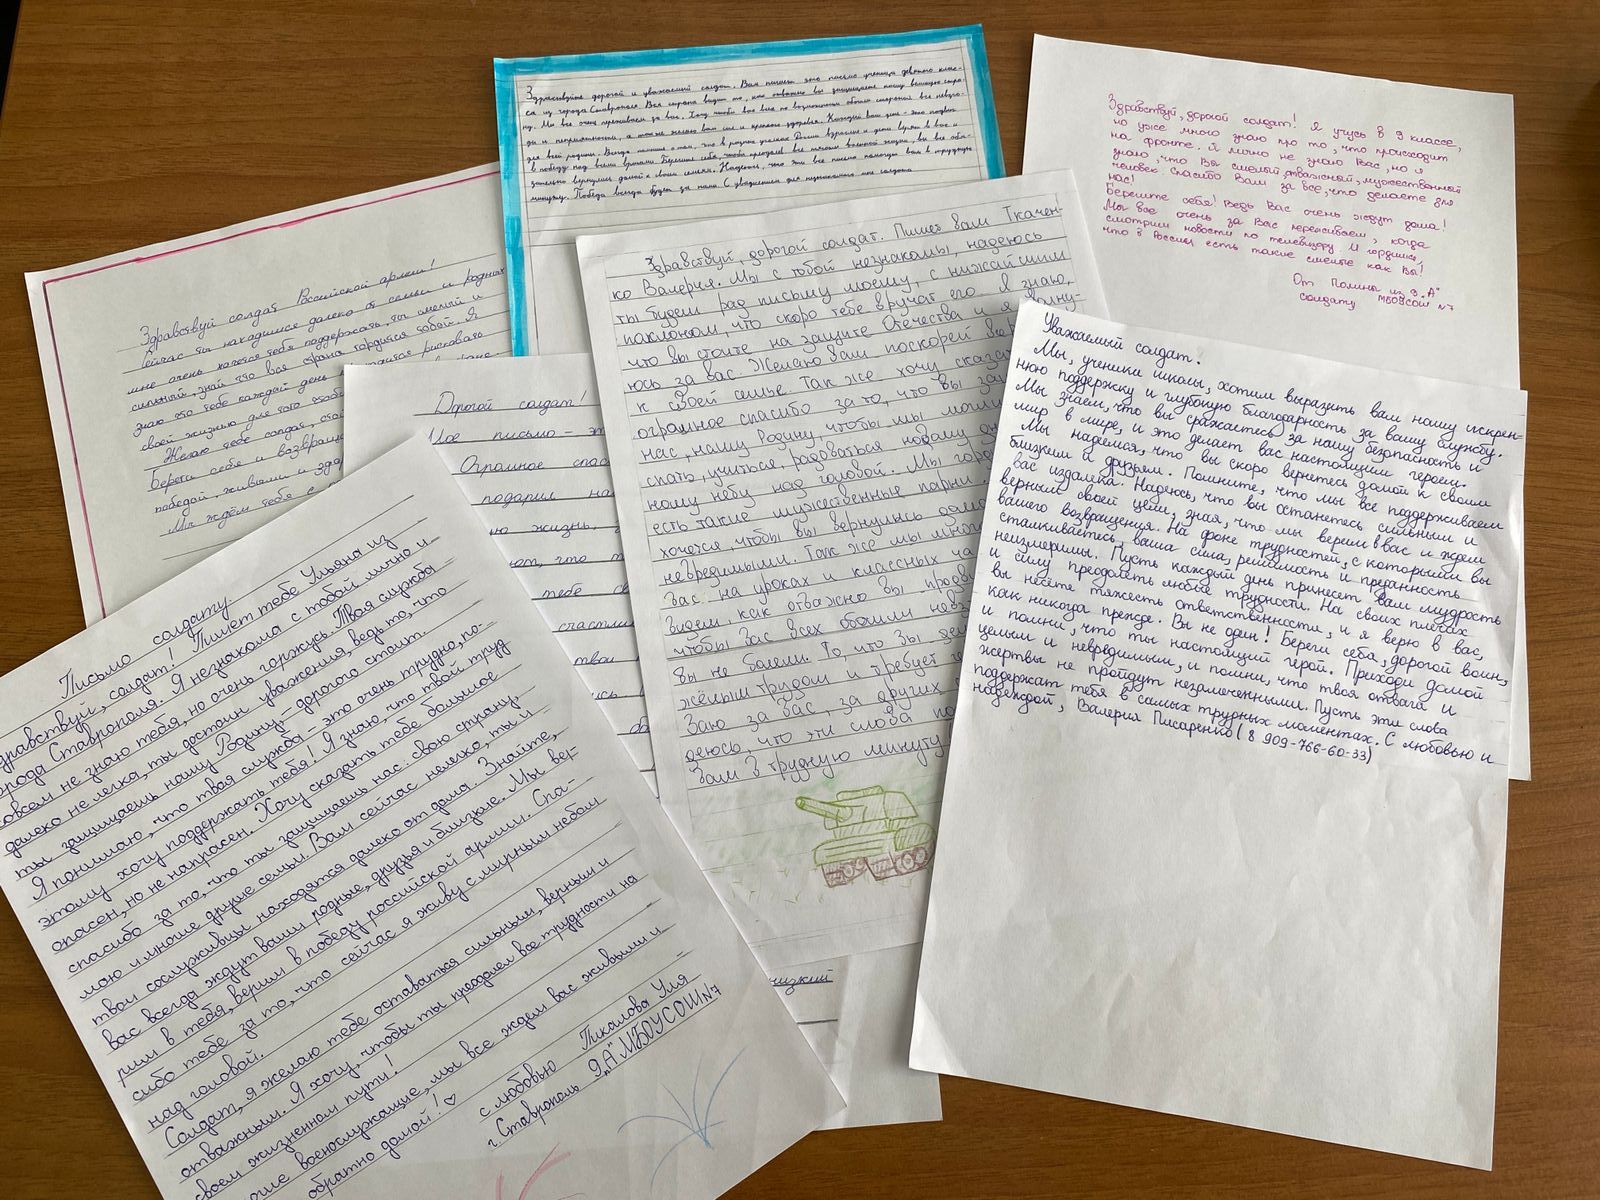 Здравствуйте дорогой и уважаемый солдат. Вам пишет это письмо ученица девятого клас-
са из города Ставрополя. Вся страна видит то, как отважно вы защищаете нашу великую стра-
ну. Мы все очень переживаем за вас. Хочу чтобы вас всех по возможности обошли стороной все невзго-
ды и неприятности, а также желаю вам сил и крепкого здоровья. Каждый ваш день - это подвиг
для всей родины. Всегда помните о том, что в родных уголках России взрослые и дети верят в вас и
в победу над всеми врагами. Берегите себя, чтобы преодолев все тяготы военной жизни, вы все обя-
зательно вернулись домой к своим семьям. Надеюсь, что эти все письма помогут вам в трудную
минуту. Победа всегда будет за нами. С уважением для незнакомого мне солдата
Здравствуй, дорогой солдат! Я учусь в 9 классе,
но уже много знаю про то, что происходит
на фронте. Я лично не знаю Вас, но я
знаю, что Вы смелый, отважный, мужественный
человек. Спасибо Вам за все, что делаете для
нас!
Берегите себя! Ведь Вас очень ждут дома!
Мы все очень за Вас переживаем, когда
смотрим новости по телевизору. И гордимся,
что в России есть такие смелые как Вы!
От Полины из 9 "А"
солдату МБОУСОШ №7
Здравствуй солдат Российской армии!
Сейчас ты находишся далеко от семьи и родных
мне очень хочется тебя поддержать, ты смелый и
сильный, знай что вся страна гордится тобой. Я
знаю что тебе каждый день приходится рисковать
своей жизнью для того чтобы
Желаю тебе солдат,
Береги себя и возвращ
победой, живыми и здор
Мы ждём тебя с
Дорогой солдат!
Мое письмо - эт
Огромное спас
подарил на
ю жизнь,
что т
тебе св
счастли
твои
низкий
Здравствуй, дорогой солдат. Пишет вам Ткачен-
ко Валерия. Мы с тобой незнакомы, надеюсь
ты будем рад письму моему, с нижайшим
поклоном, что скоро тебе вручат его. Я знаю,
что вы стоите на защите Отечества и я волну-
юсь за вас. Желаю вам поскорей вер
к своей семье. Так же хочу сказат
огромное спасибо за то, что вы защ
нас, нашу Родину, чтобы мы могли
спать, учиться, радоваться новому дн
ному небу над головой. Мы горд
есть такие мужественные парни.
хочется, чтобы вы вернулись дом
невредимыми. Так же мы много
вас на уроках и классных ча
видем, как отважно вы прояв
чтобы вас всех обошли невз
вы не болели. То, что вы дел
жёлым трудом и требует
ваю за вас, за других
деюсь, что эти слова по
вам в трудную минуту
Уважаемый солдат!
Мы, ученики школы, хотим выразить вам нашу искрен-
нюю поддержку и глубокую благодарность за вашу службу.
Мы знаем, что вы сражаетесь за нашу безопасность и
мир в мире, и это делает вас настоящим героем.
Мы надеемся, что вы скоро вернетесь домой к своим
близким и друзьям. Помните, что мы все поддерживаем
вас издалека. Надеюсь, что вы останетесь сильным и
верным своей цели, зная, что мы верим в вас и ждем
вашего возвращения. На фоне трудностей, с которыми вы
сталкиваетесь, ваша сила, решимость и преданность
неизмеримы. Пусть каждый день принесет вам мудрость
и силу преодолеть любые трудности. На своих плечах
вы несёте тяжесть ответственности, и я верю в вас,
как никогда прежде. Вы не один! Береги себя, дорогой воин,
и помни, что ты настоящий герой. Приходи домой
целым и невредимым, и помни, что твоя отвага и
жертвы не пройдут незамеченными. Пусть эти слова
поддержат тебя в самых трудных моментах. С любовью и
надеждой, Валерия Писаренко (8 909-766-60-33)
Письмо солдату
Здравствуй, солдат! Пишет тебе Ульяна из
города Ставрополя. Я незнакома с тобой лично и
совсем не знаю тебя, но очень горжусь. Твоя служба
далеко не легка, ты достоин уважения, ведь то, что
ты защищаешь нашу Родину - дорогого стоит.
Я понимаю, что твоя служба - это очень трудно, по-
этому хочу поддержать тебя! Я знаю, что твой труд
опасен, но не напрасен. Хочу сказать тебе большое
спасибо за то, что ты защищаешь нас: свою страну,
мою и многие другие семьи. Вам сейчас нелегко, ты и
твои сослуживцы находятся далеко от дома. Знайте,
вас всегда ждут ваши родные, друзья и близкие. Мы ве-
рим в тебя, верим в победу российской армии. Спа-
сибо тебе за то, что сейчас я живу с мирным небом
над головой.
Солдат, я желаю тебе оставаться сильным, верным и
отважным. Я хочу, чтобы ты преодолел все трудности на
своем жизненном пути!
военнослужащие, мы все ждем вас живыми и
обратно домой! ♡
с любовью Пикалова Улья-
г. Ставрополь 9 „А" МБОУСОШ №7